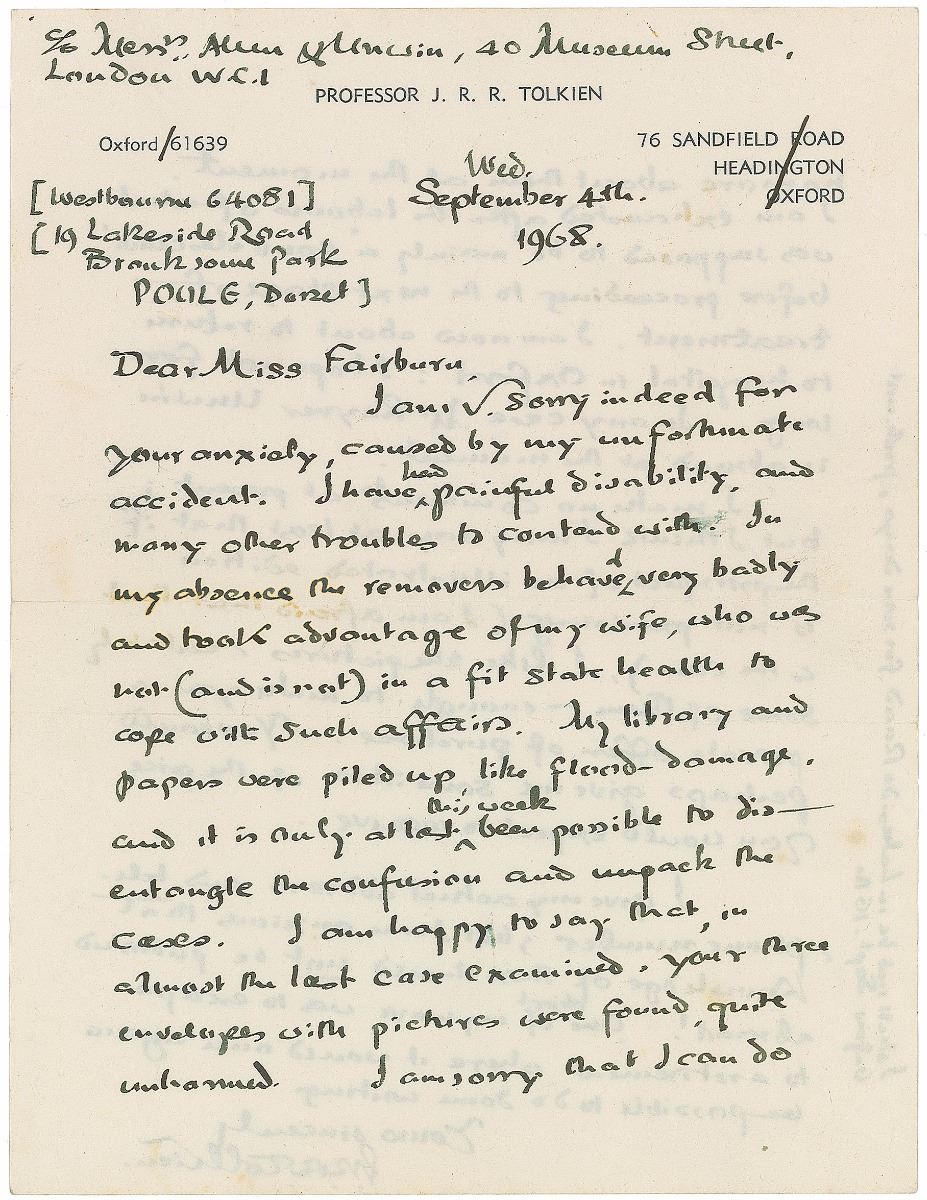 c/o Messrs. Allen & Unwin, 40 Museum Street,
London W.C.1
PROFESSOR J. R. R. TOLKIEN
Oxford/61639
76 SANDFIELD ROAD
HEADINGTON
OXFORD
Wed.
September 4th.
1968.
[Westbourne 64081]
[19 Lakeside Road
Branksome Park
POOLE, Dorset]
Dear Miss Fairburn,
I am √ sorry indeed for
your anxiety, caused by my unfortunate
accident. I have had painful disability, and
many other troubles to contend with. In
my absence the removers behaved very badly
and took advantage of my wife, who was
not (and is not) in a fit state health to
cope with such affairs. My library and
papers were piled up, like flood-damage,
and it is only at last this week been possible to dis-
entangle the confusion and unpack the
cases. I am happy to say that, in
almost the last case examined, your three
envelopes with pictures were found, quite
unharmed. I am sorry that I can do